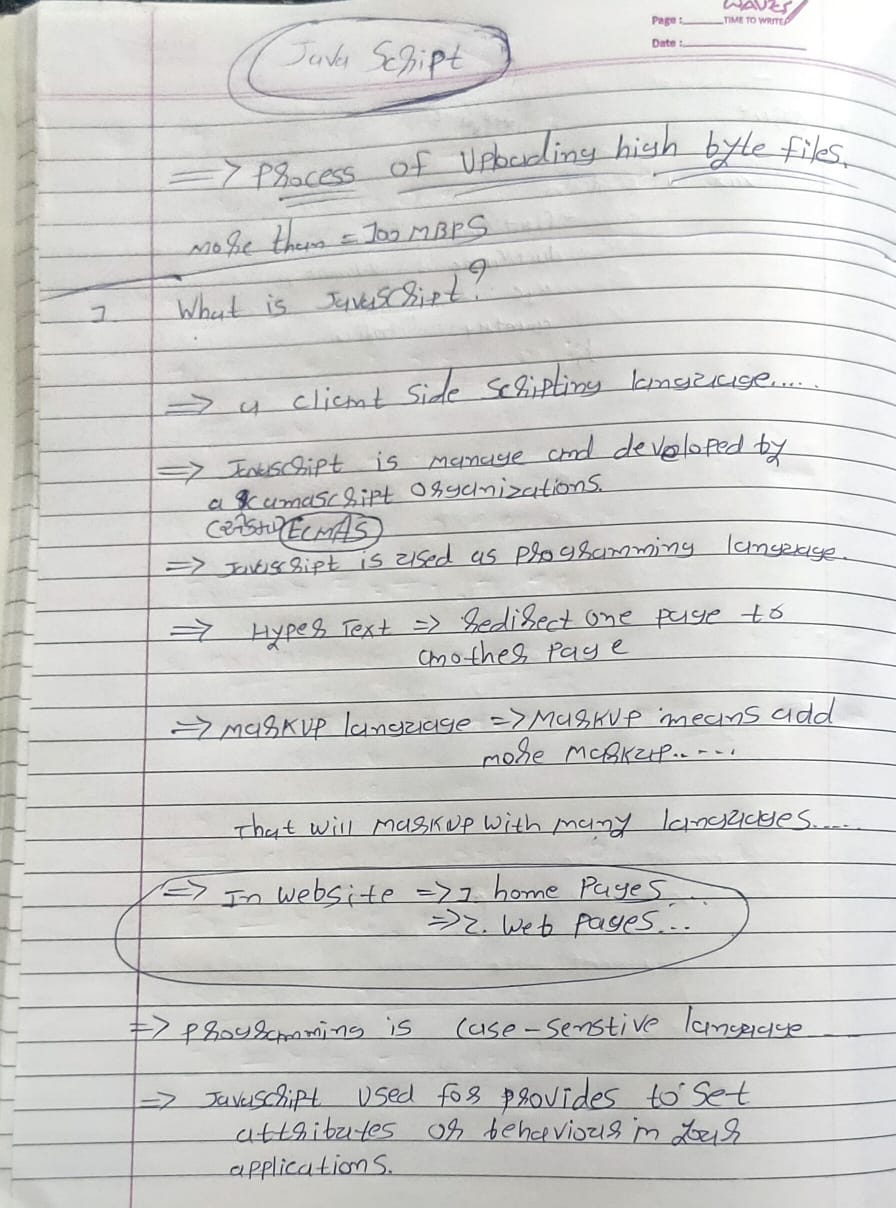 WAVES
Page :
TIME TO WRITE
Date :
Java Script
=> Process of Uploading high byte files.
more than = 100 MBPS
1. What is Javascript?
=> a client side scripting language.....
=> Javascript is manage and developed by
a organizations.
(ECMAS)
=> Javascript is used as programming language.
=> Hyper Text => redirect one page to
another page
=> markup language => Markup means add
more markup......
That will markup with many languages.....
=> In website => 1. home Pages...
=> 2. Web pages...
=> programming is case-senstive language
=> Javascript used for provides to set
attributes or behaviour in your
applications.